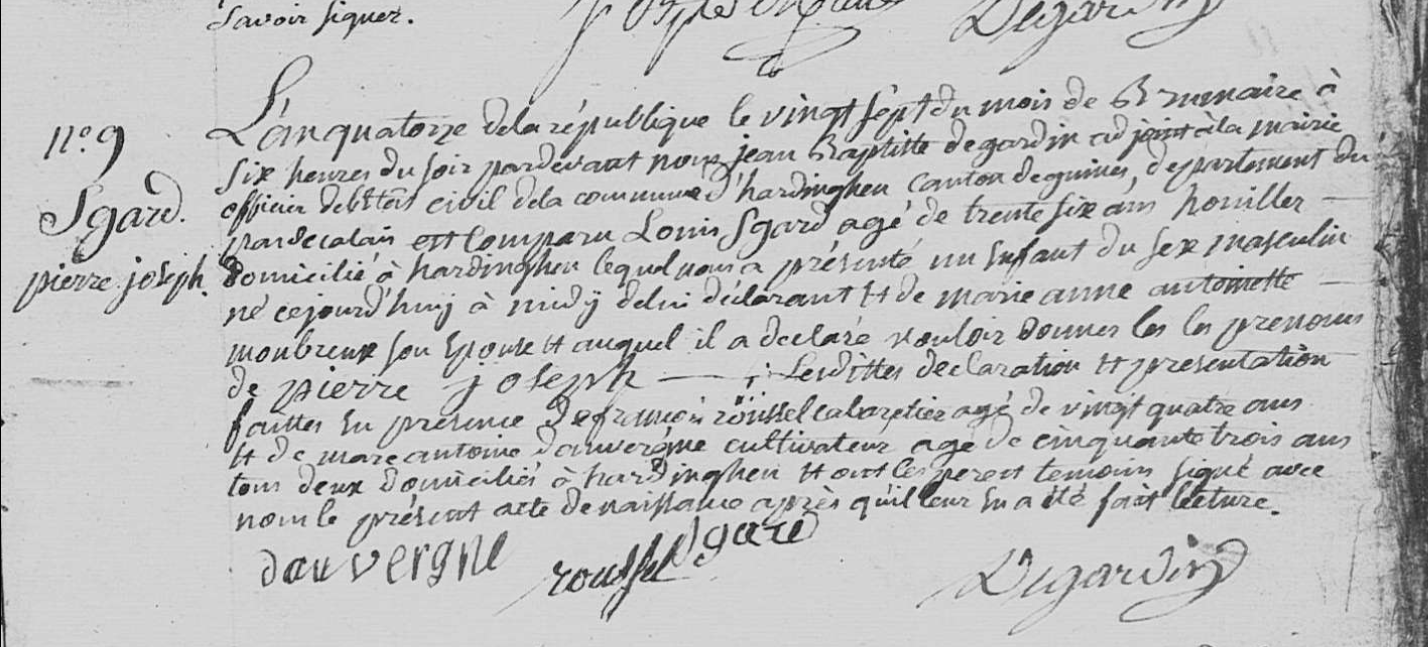 Savoir signer.
Degardin
n.o 9
Sgard.
pierre joseph.
L'an quatorze de la république le vingt sept du mois de Brumaire à
six heures du soir pardevant nous jean Baptiste degardin adjoint à la mairie
officier de l'état civil de la commune d'hardinghen canton de guines, departement du
pas de calais est comparu Louis Sgard agé de trente six ans houiller
domicilié à hardinghen lequel nous a présenté un Enfant du sex masculin
né cejourd'huy à midÿ de lui déclarant et de marie anne antoinette
monbreux son Epouse et auquel il a declaré vouloir donner les les prenoms
de pierre joseph Lesdittes declaration et presentation
faittes En presence de françois roüssel cabaretier agé de vingt quatre ans
et de marc antoine dauvergne cultivateur agé de cinquante trois ans
tous deux domiciliés à hardinghen et ont les pere et temoins signé avec
nous le présent acte de naissance après qu'il leur En a été fait lecture.
dauvergne roussel Sgard Degardin